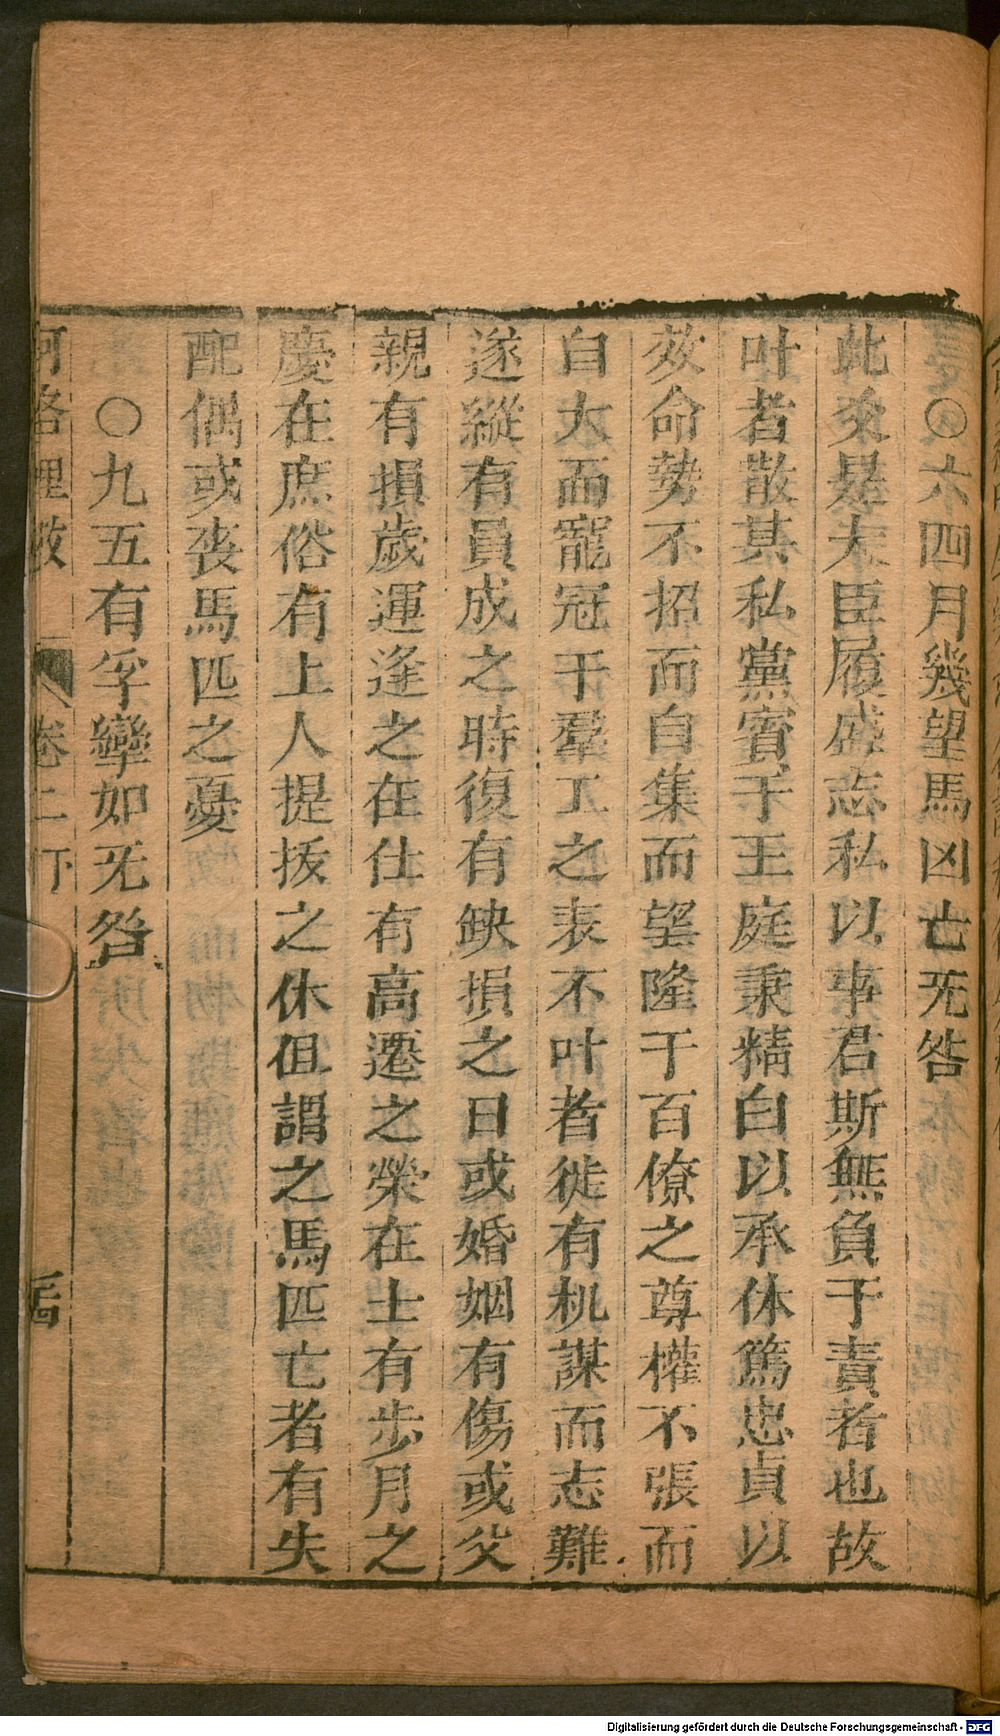 ○六四月幾望馬凶亡旡咎
此爻是大臣履盛志私以事君斯無負于責者也故
叶者散其私黨賓于王庭秉精白以承休篤忠貞以
效命勢不招而自集而望隆于百僚之尊權不張而
自大而寵冠于羣工之表不叶者徙有机謀而志難
遂縱有員成之時復有缺損之日或婚姻有傷或父
親有損歲運逢之在仕有高遷之榮在士有步月之
慶在庶俗有上人提拔之休但謂之馬匹亡者有失
配偶或丧馬匹之憂
○九五有孚攣如旡咎
河洛理数 卷二下
Digitalisierung gefördert durch die Deutsche Forschungsgemeinschaft - DFG